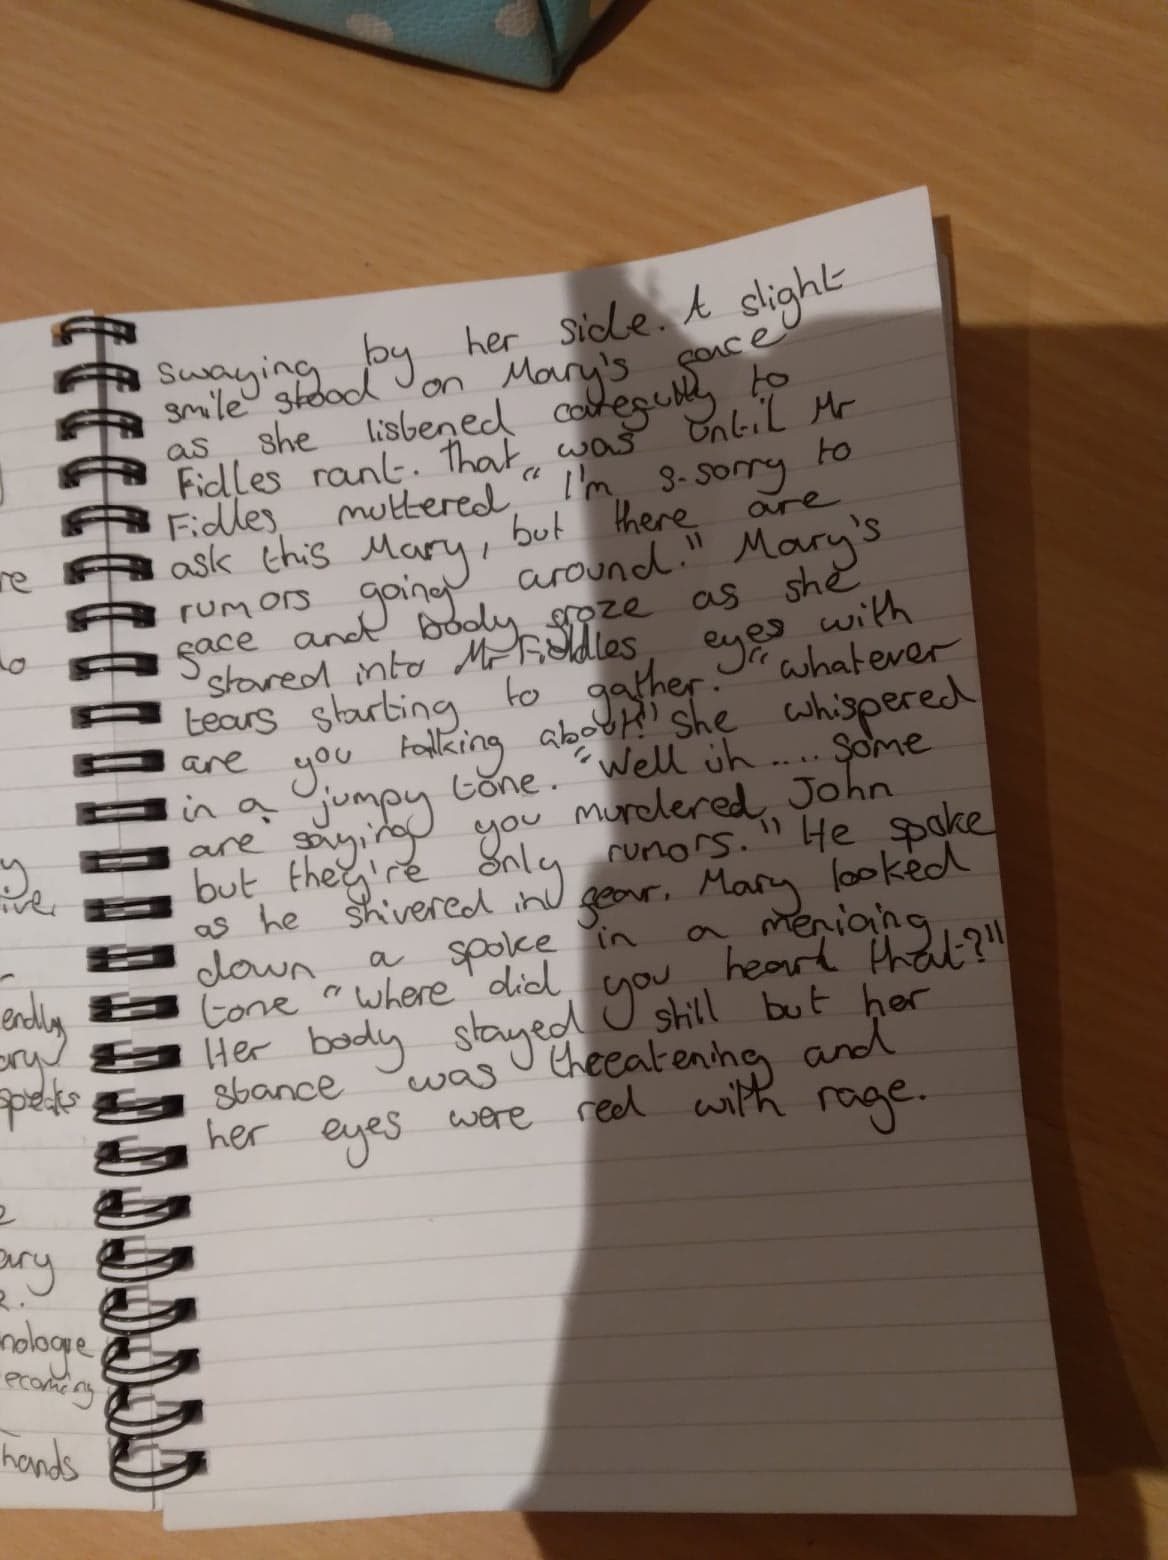 swaying by her side. A slight
smile stood on Mary's face
as she listened carefully to
Fidles rant. That was until Mr
Fidles muttered "I'm s-sorry to
ask this Mary, but there are
rumors going around." Mary's
face and body froze as she
stared into Mr Fiddles eyes with
tears starting to gather. "whatever
are you talking about!" she whispered
in a jumpy tone. "Well uh .... some
are saying you murdered John
but they're only rumors." He spoke
as he shivered in fear. Mary looked
down a spoke in a menicing
tone "where did you heard that?"
Her body stayed still but her
stance was theeatening and
her eyes were red with rage.
re
lo
y
ive,
endly
ary
spects
e
ary
e.
nologue
ecoming
hands